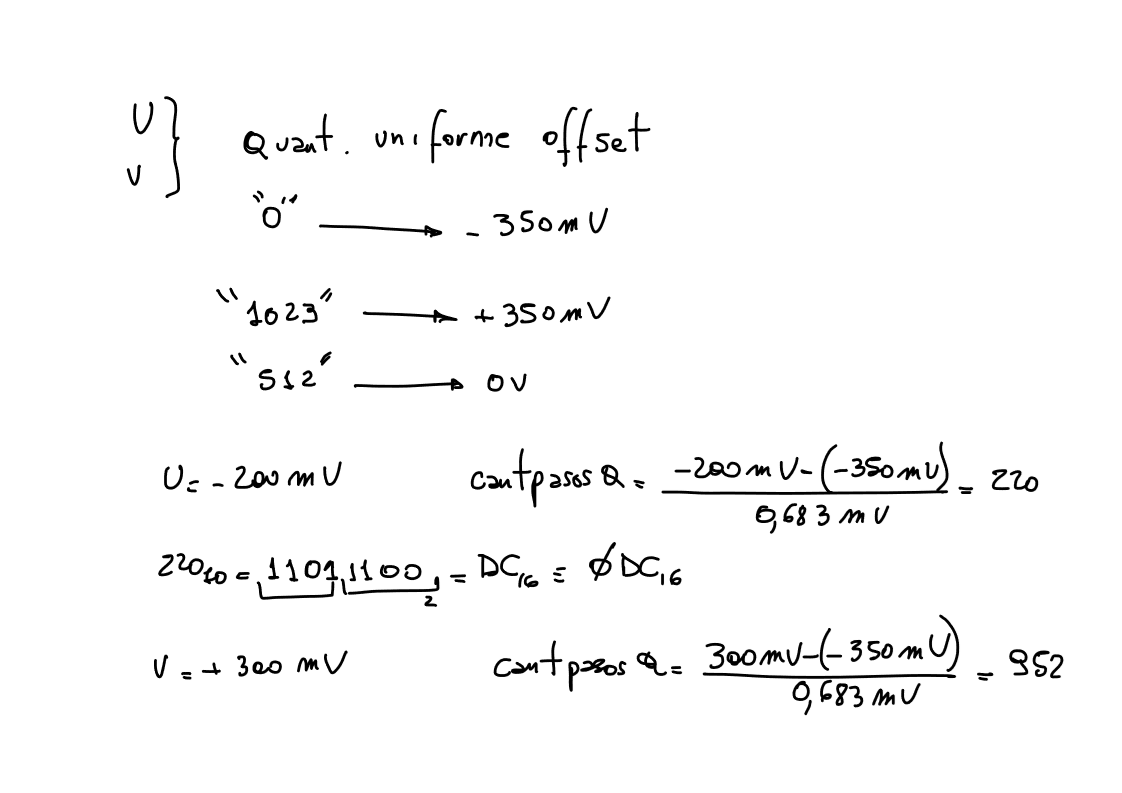 U
v } Quant. uniforme offset
"0" → - 350mV
"1023" → + 350mV
"512" → 0V
U= - 200 mV cant pasos Q = (-200mV-(-350mV))/(0,683 mV) = 220
220₁₀ = 1101 1100₂ = DC₁₆ = ØDC₁₆
V = + 300 mV cant pasos Q = (300mV-(-350mV))/(0,683 mV) = 952